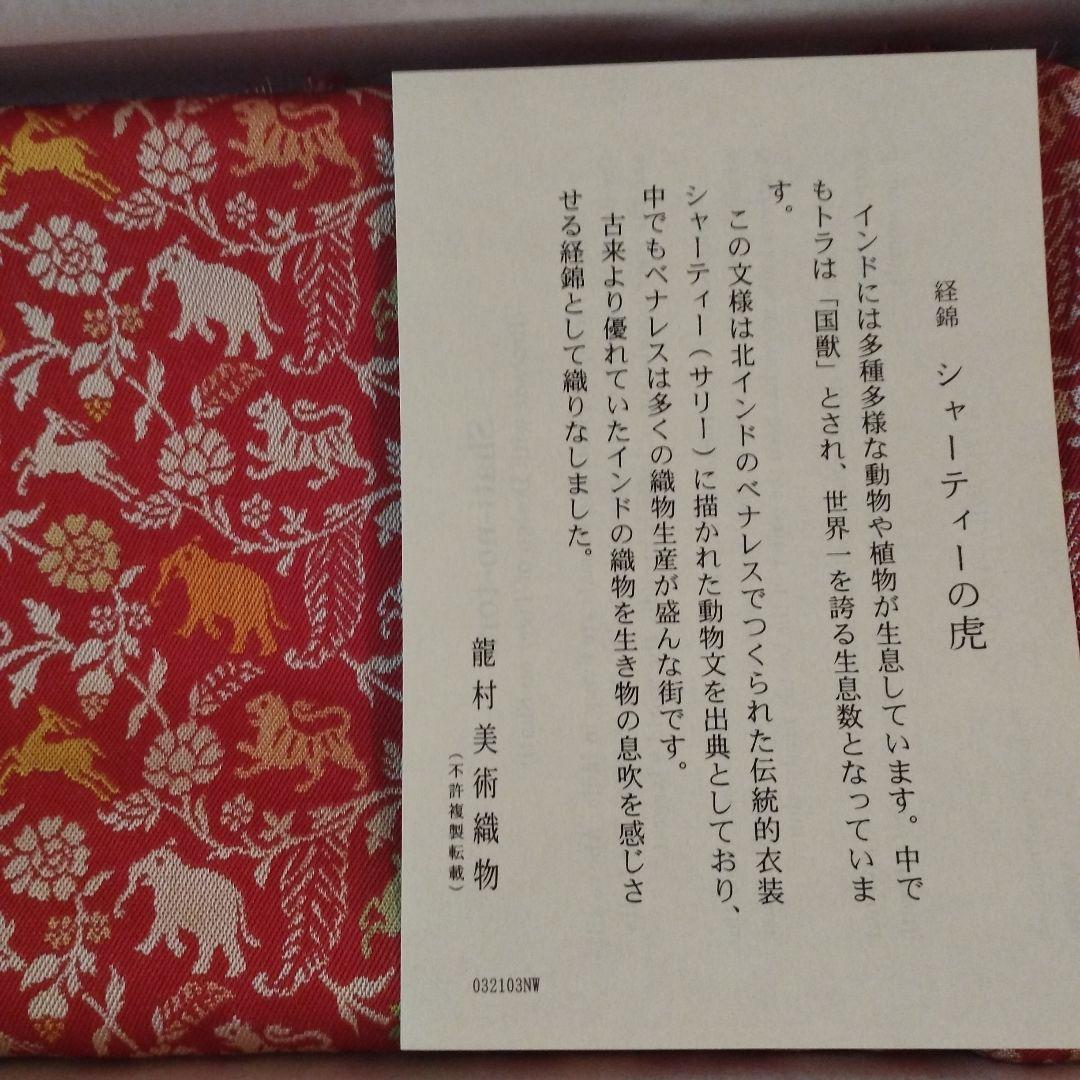 経錦 シャーティーの虎
インドには多種多様な動物や植物が生息しています。中で
もトラは「国獣」とされ、世界一を誇る生息数となっていま
す。
この文様は北インドのベナレスでつくられた伝統的衣装
シャーティー(サリー)に描かれた動物文を出典としており、
中でもベナレスは多くの織物生産が盛んな街です。
古来より優れていたインドの織物を生き物の息吹を感じさ
せる経錦として織りなしました。
龍村美術織物
(不許複製転載)
032103NW